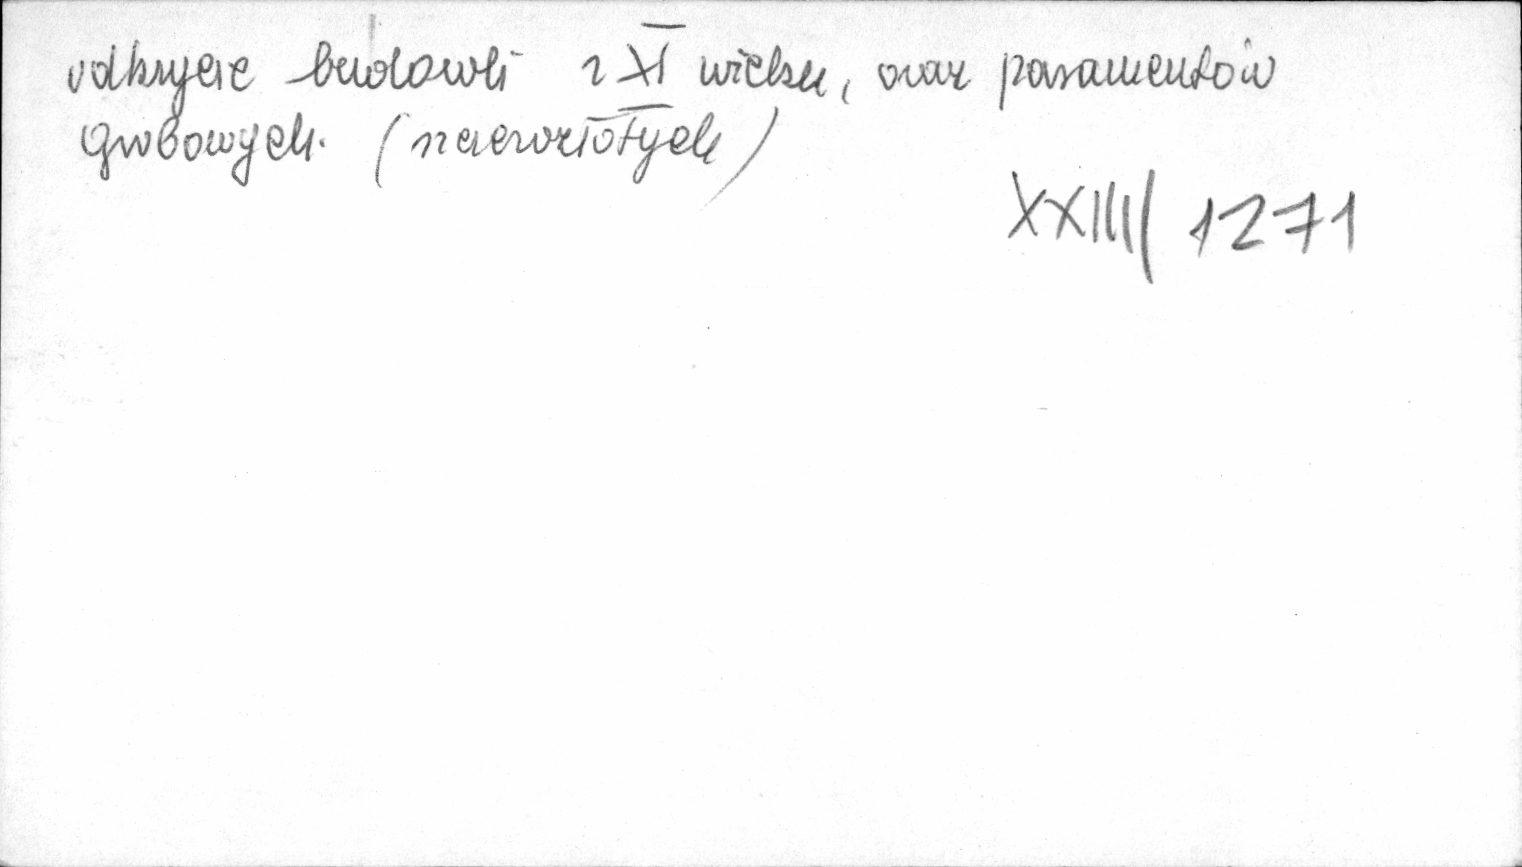 odkrycie budowli z XI wieku, oraz paramentów
grobowych. (szczerozłotych)
XXIII/ 1271